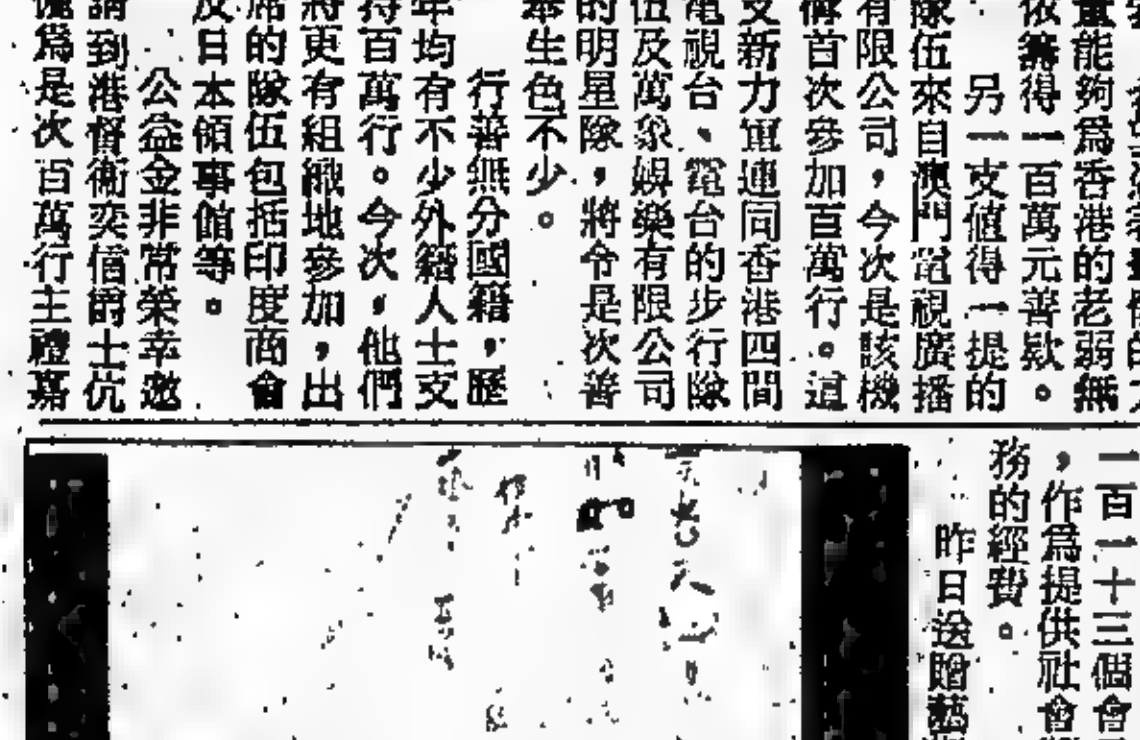 量能夠爲香港的老弱無
依籌得一百萬元善欵。
另一支值得一提的
隊伍來自澳門電視廣播
有限公司,今次是該機
構首次參加百萬行。這
支新力軍連同香港四間
電視台、電台的步行隊
伍及萬象娛樂有限公司
的明星隊,將令是次善
舉生色不少。
行善無分國籍,歷
年均有不少外籍人士支
持百萬行。今次,他們
將更有組織地參加,出
席的隊伍包括印度商會
及日本領事館等。
公益金非常榮幸邀
請到港督衞奕信爵士伉
儷爲是次百萬行主禮嘉
一百一十三個會
,作爲提供社會
務的經費。
昨日送贈藝